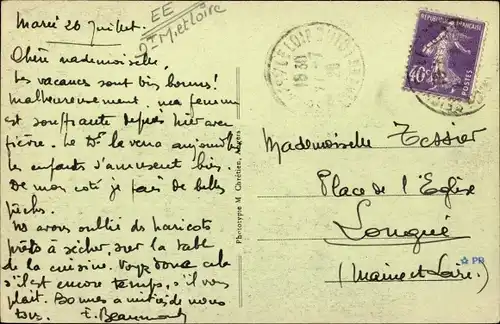 Mardi 26 Juillet.
EE
Dt M. et Loire
Chère mademoiselle,
Les vacances sont bis bonnes!
malheureusement, ma femme
est souffrante depuis hier avec
fièvre. Le Dr la verra aujourd'hui
les enfants s'amusent bien.
De mon coté je fais de belles
pêches.
Ns avons oublié des haricots
prêts à sécher, sur la table
de la cuisine. Voyez donc cela
s'il est encore temps, s'il vous
plait. Bonnes amitiés de nous
tous. E. Beaumont
Phototypie M. Chrétien, Angers
RÉPUBLIQUE FRANÇAISE
40c
POSTES
Mademoiselle Tessier
Place de l'Eglise
Longué
(Maine et Loire)
PR